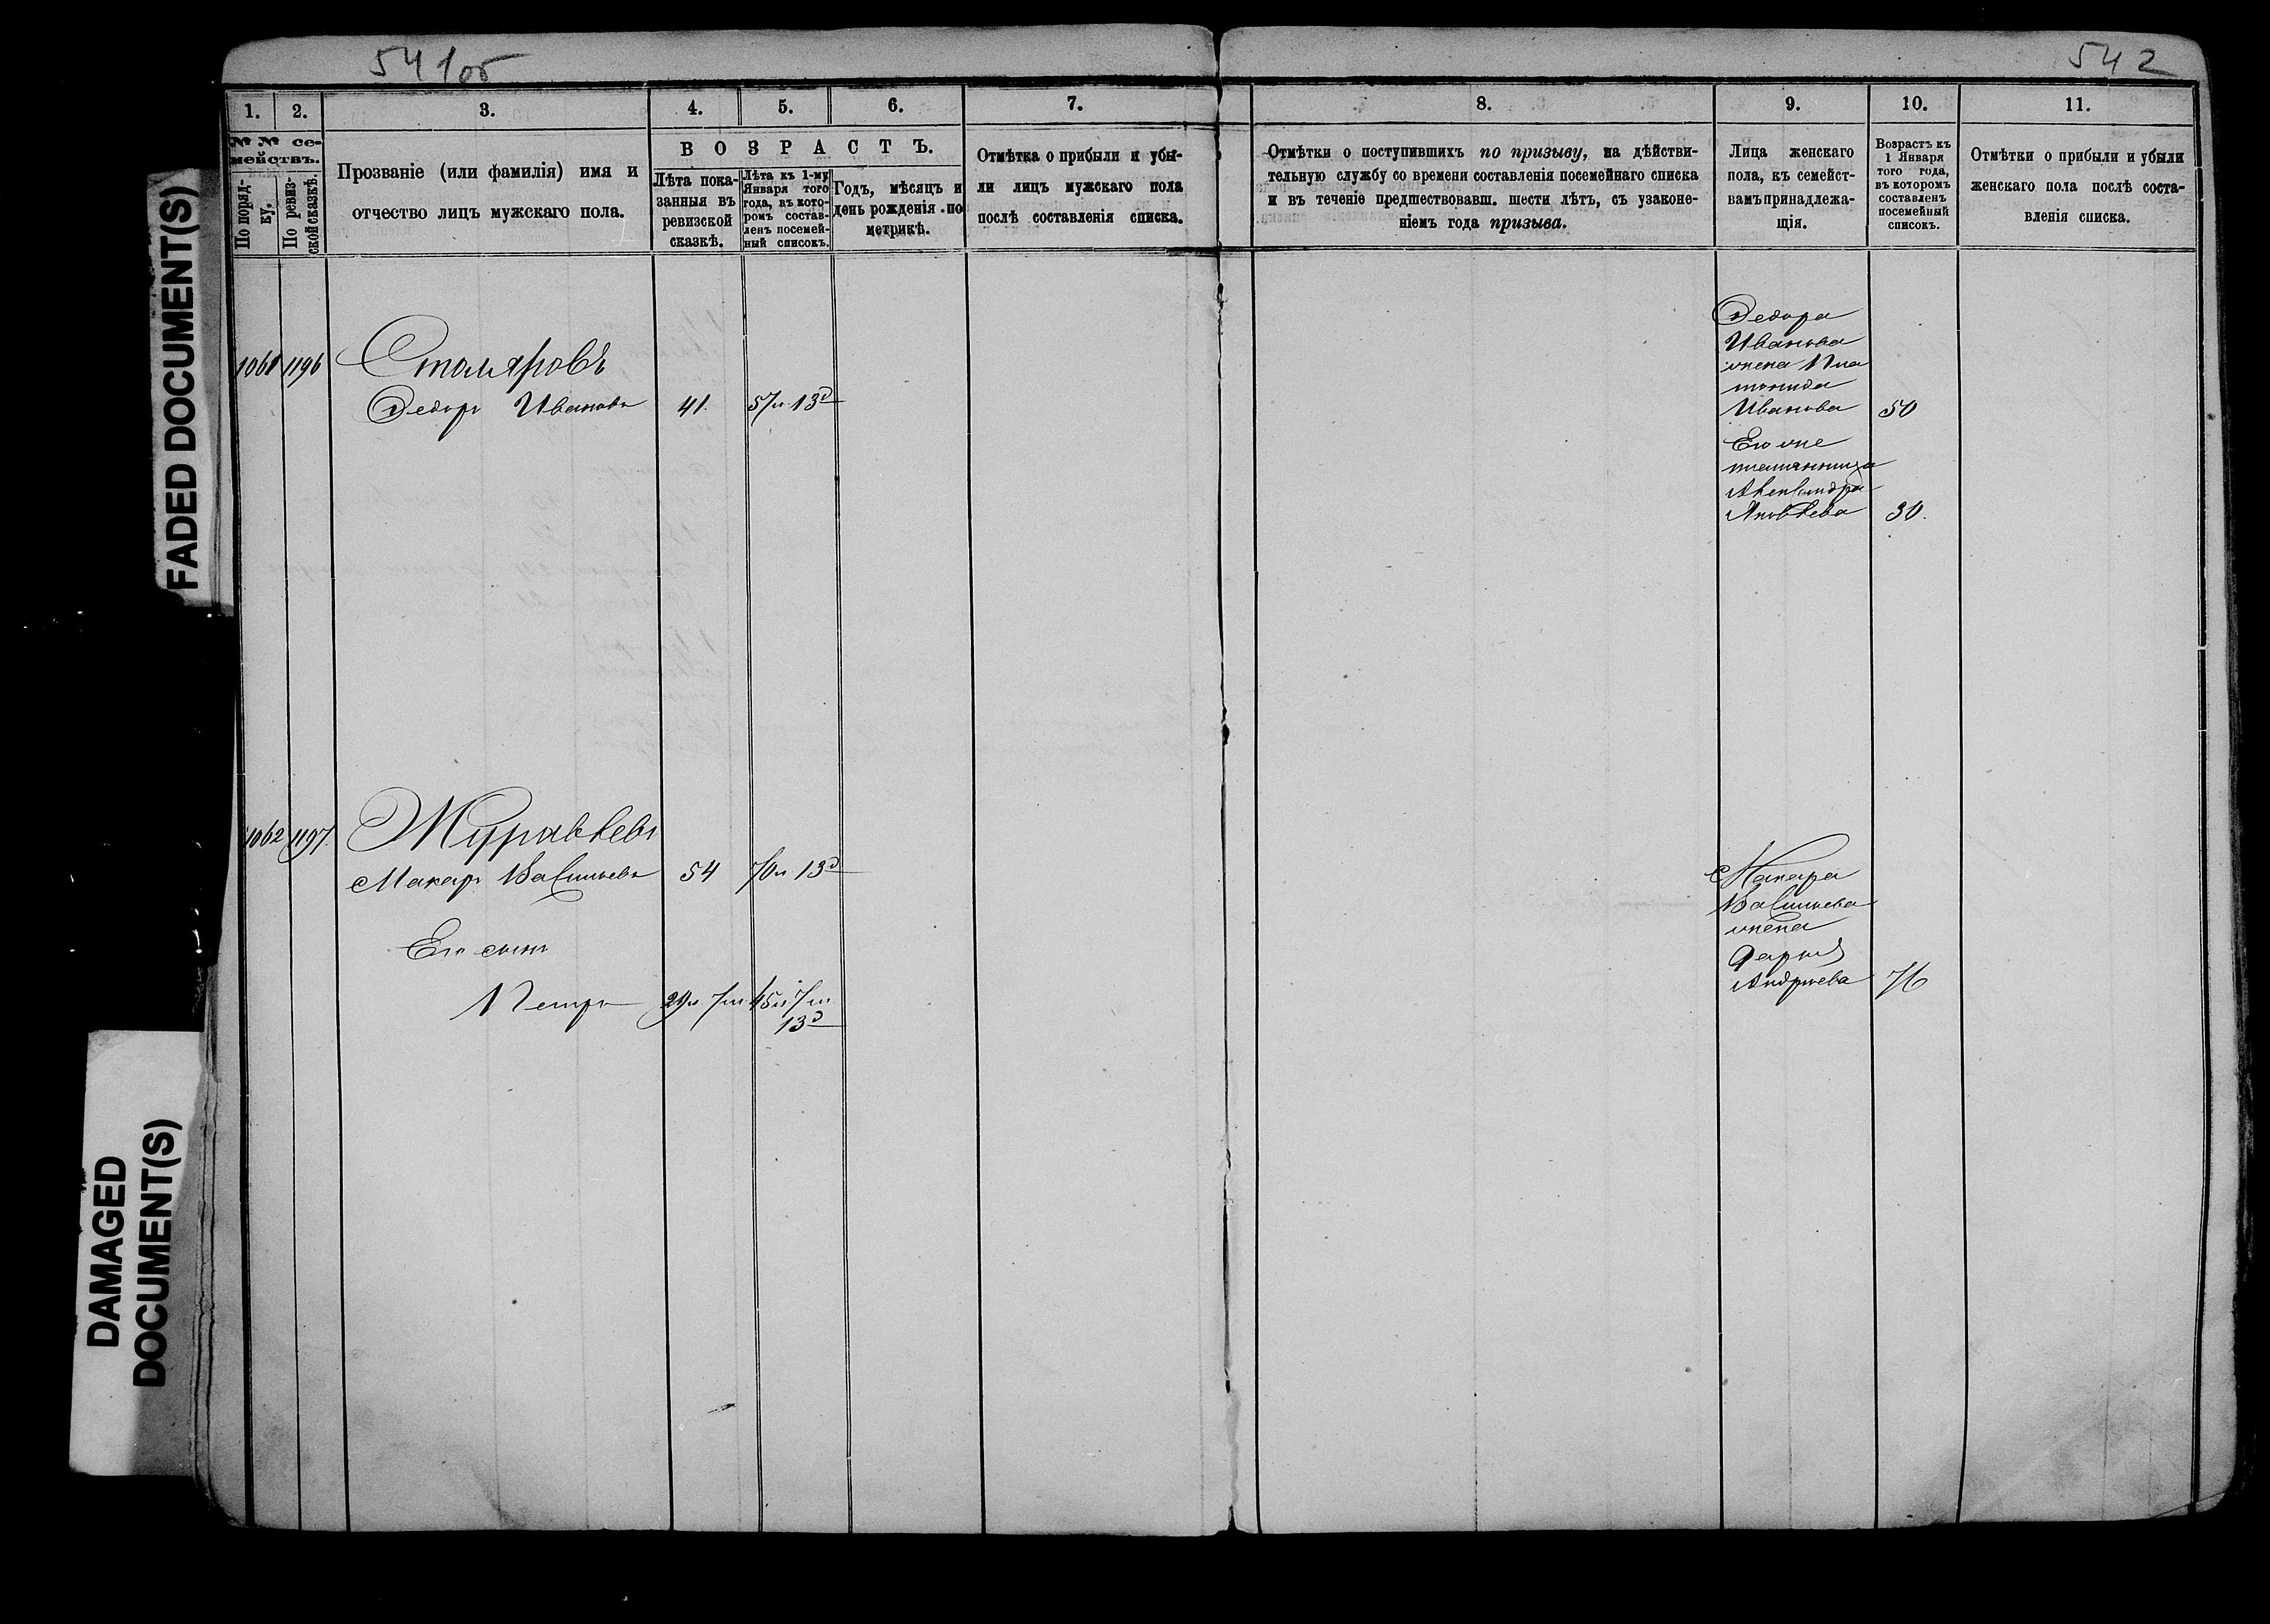 541об
542
1.
2.
3.
4.
5.
6.
7.
8.
9.
10.
11.
№ № се-
мействъ.
По поряд-
ку.
По ревиз-
ской сказкѣ.
Прозваніе (или фамилія) имя и
отчество лицъ мужскаго пола.
ВОЗРАСТЪ.
Лѣта пока-
занныя въ
ревизской
сказкѣ.
Лѣта къ 1-му
Января того
года, въ кото-
ромъ состав-
ленъ посемей-
ный списокъ.
Годъ, мѣсяцъ и
день рожденія по
метрикѣ.
Отмѣтка о прибыли и убы-
ли лицъ мужскаго пола
послѣ составленія списка.
Отмѣтки о поступившихъ по призыву, на дѣйстви-
тельную службу со времени составленія посемейнаго списка
и въ теченіе предшествовавш. шести лѣтъ, съ узаконе-
ніемъ года призыва.
Лица женскаго
пола, къ семейст-
вамъ принадлежа-
щія.
Возрастъ къ
1 Января
того года,
въ которомъ
составленъ
посемейный
списокъ.
Отмѣтки о прибыли и убыли
женскаго пола послѣ соста-
вленія списка.
1061 1196 Столяровъ
Ѳедоръ Ивановъ 41. 57 л. 13 д
Ѳедора
Иванова
жена Пла
тонида
Иванова 50
Его же
племянница
Александра
Яковлева 30.
1062 1197. Журавлевъ
Макаръ Васильевъ 54 70 л 13 д
Его сынъ
Петръ 29 л. 7 м. 45 л 7 м
13 д
Макара
Васильева
жена
Дарья
Андреева 76
FADED DOCUMENT(S)
DAMAGED
DOCUMENT(S)